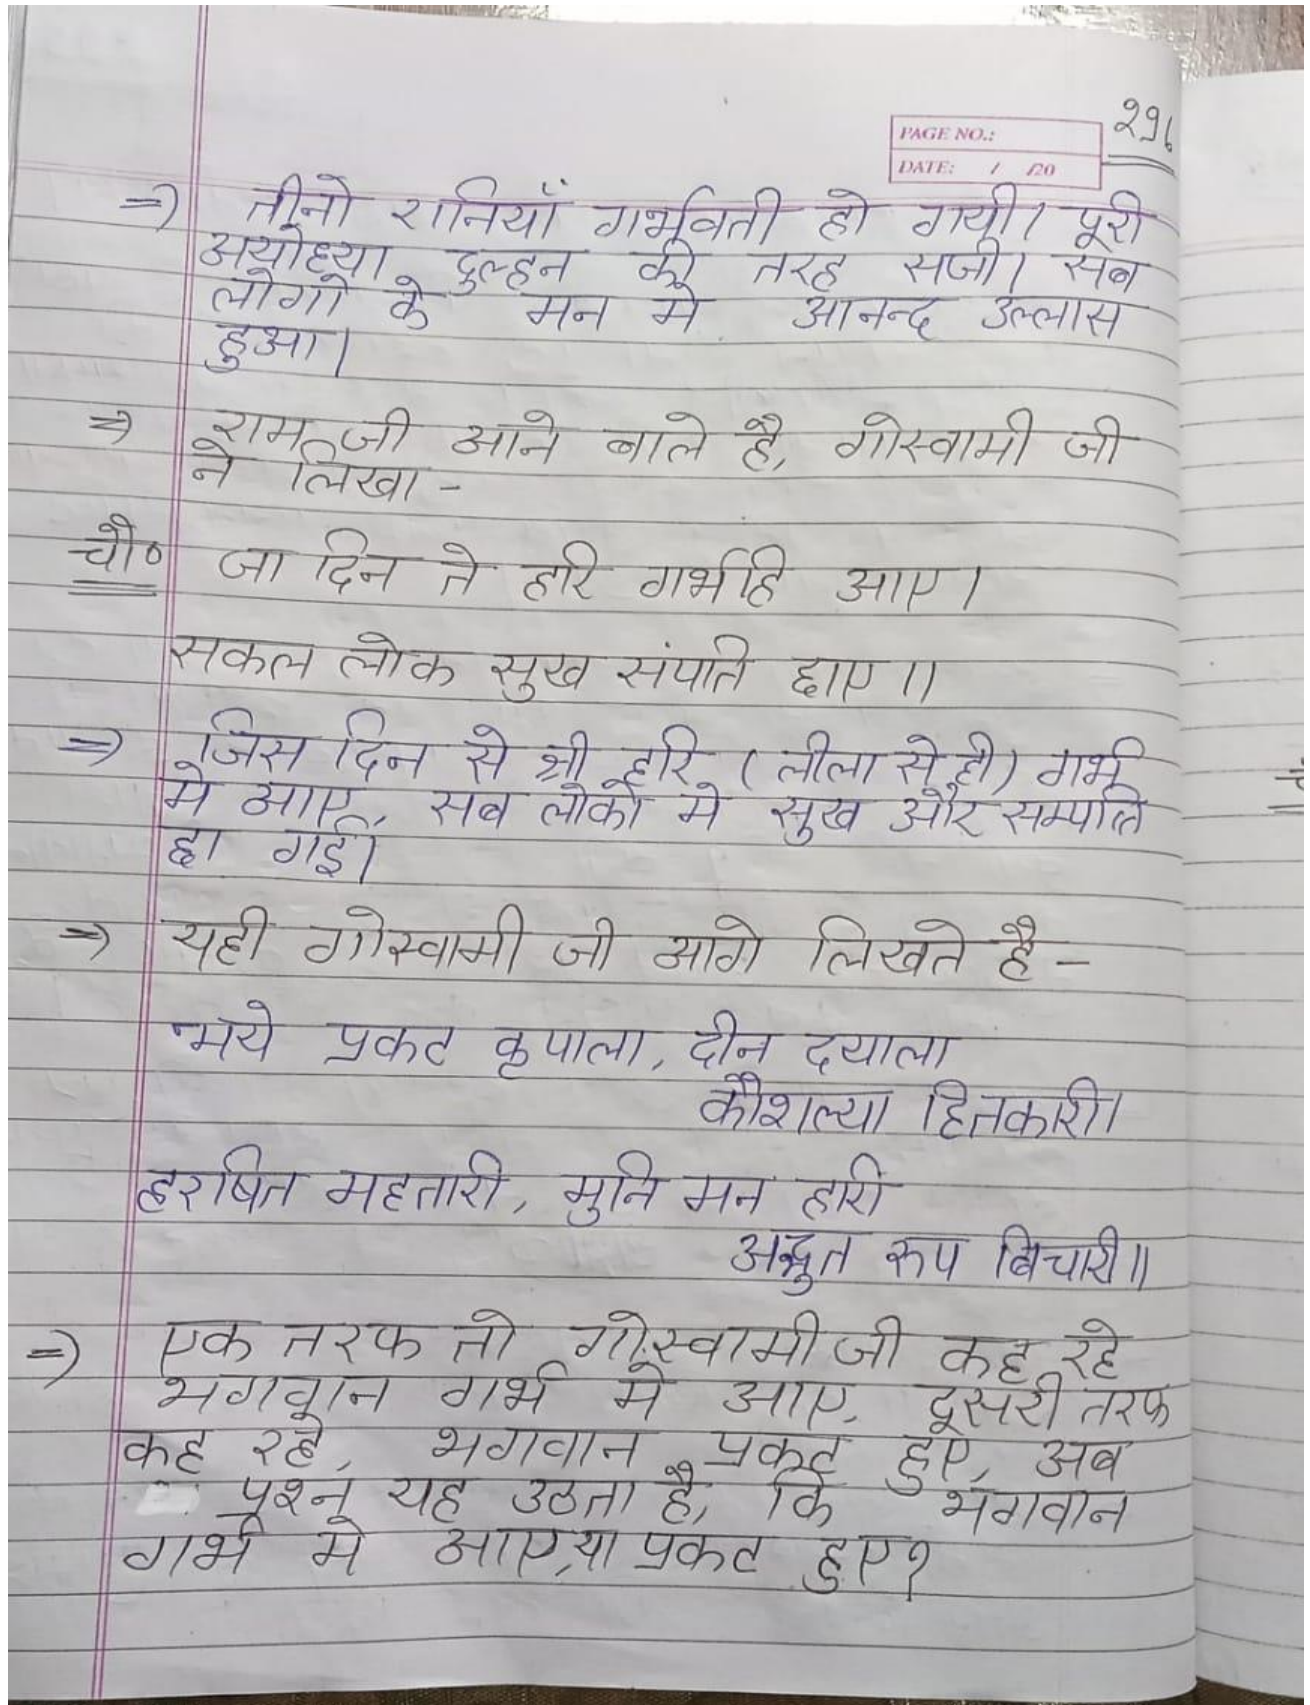 २९६
PAGE NO.:
DATE: / /20
=) तीनो रानियाँ गर्भवती हो गयी। पूरी
अयोध्या दुल्हन की तरह सजी। सब
लोगो के मन मे आनन्द उल्लास
हुआ।
=) राम जी आने बाले है, गोस्वामी जी
ने लिखा -
चौ० जा दिन ते हरि गर्भहि आए।
सकल लोक सुख संपति छाए॥
=) जिस दिन से श्री हरि (लीला से ही) गर्भ
मे आए, सब लोको मे सुख और सम्पत्ति
छा गई।
=) यही गोस्वामी जी आगे लिखते है -
"भये प्रकट कृपाला, दीन दयाला
कौशल्या हितकारी।
हरषित महतारी, मुनि मन हारी
अद्भुत रूप बिचारी॥
=) एक तरफ तो गोस्वामी जी कह रहे
भगवान गर्भ मे आए, दूसरी तरफ
कह रहे, भगवान प्रकट हुए, अब
प्रश्न यह उठता है, कि भगवान
गर्भ मे आए, या प्रकट हुए?